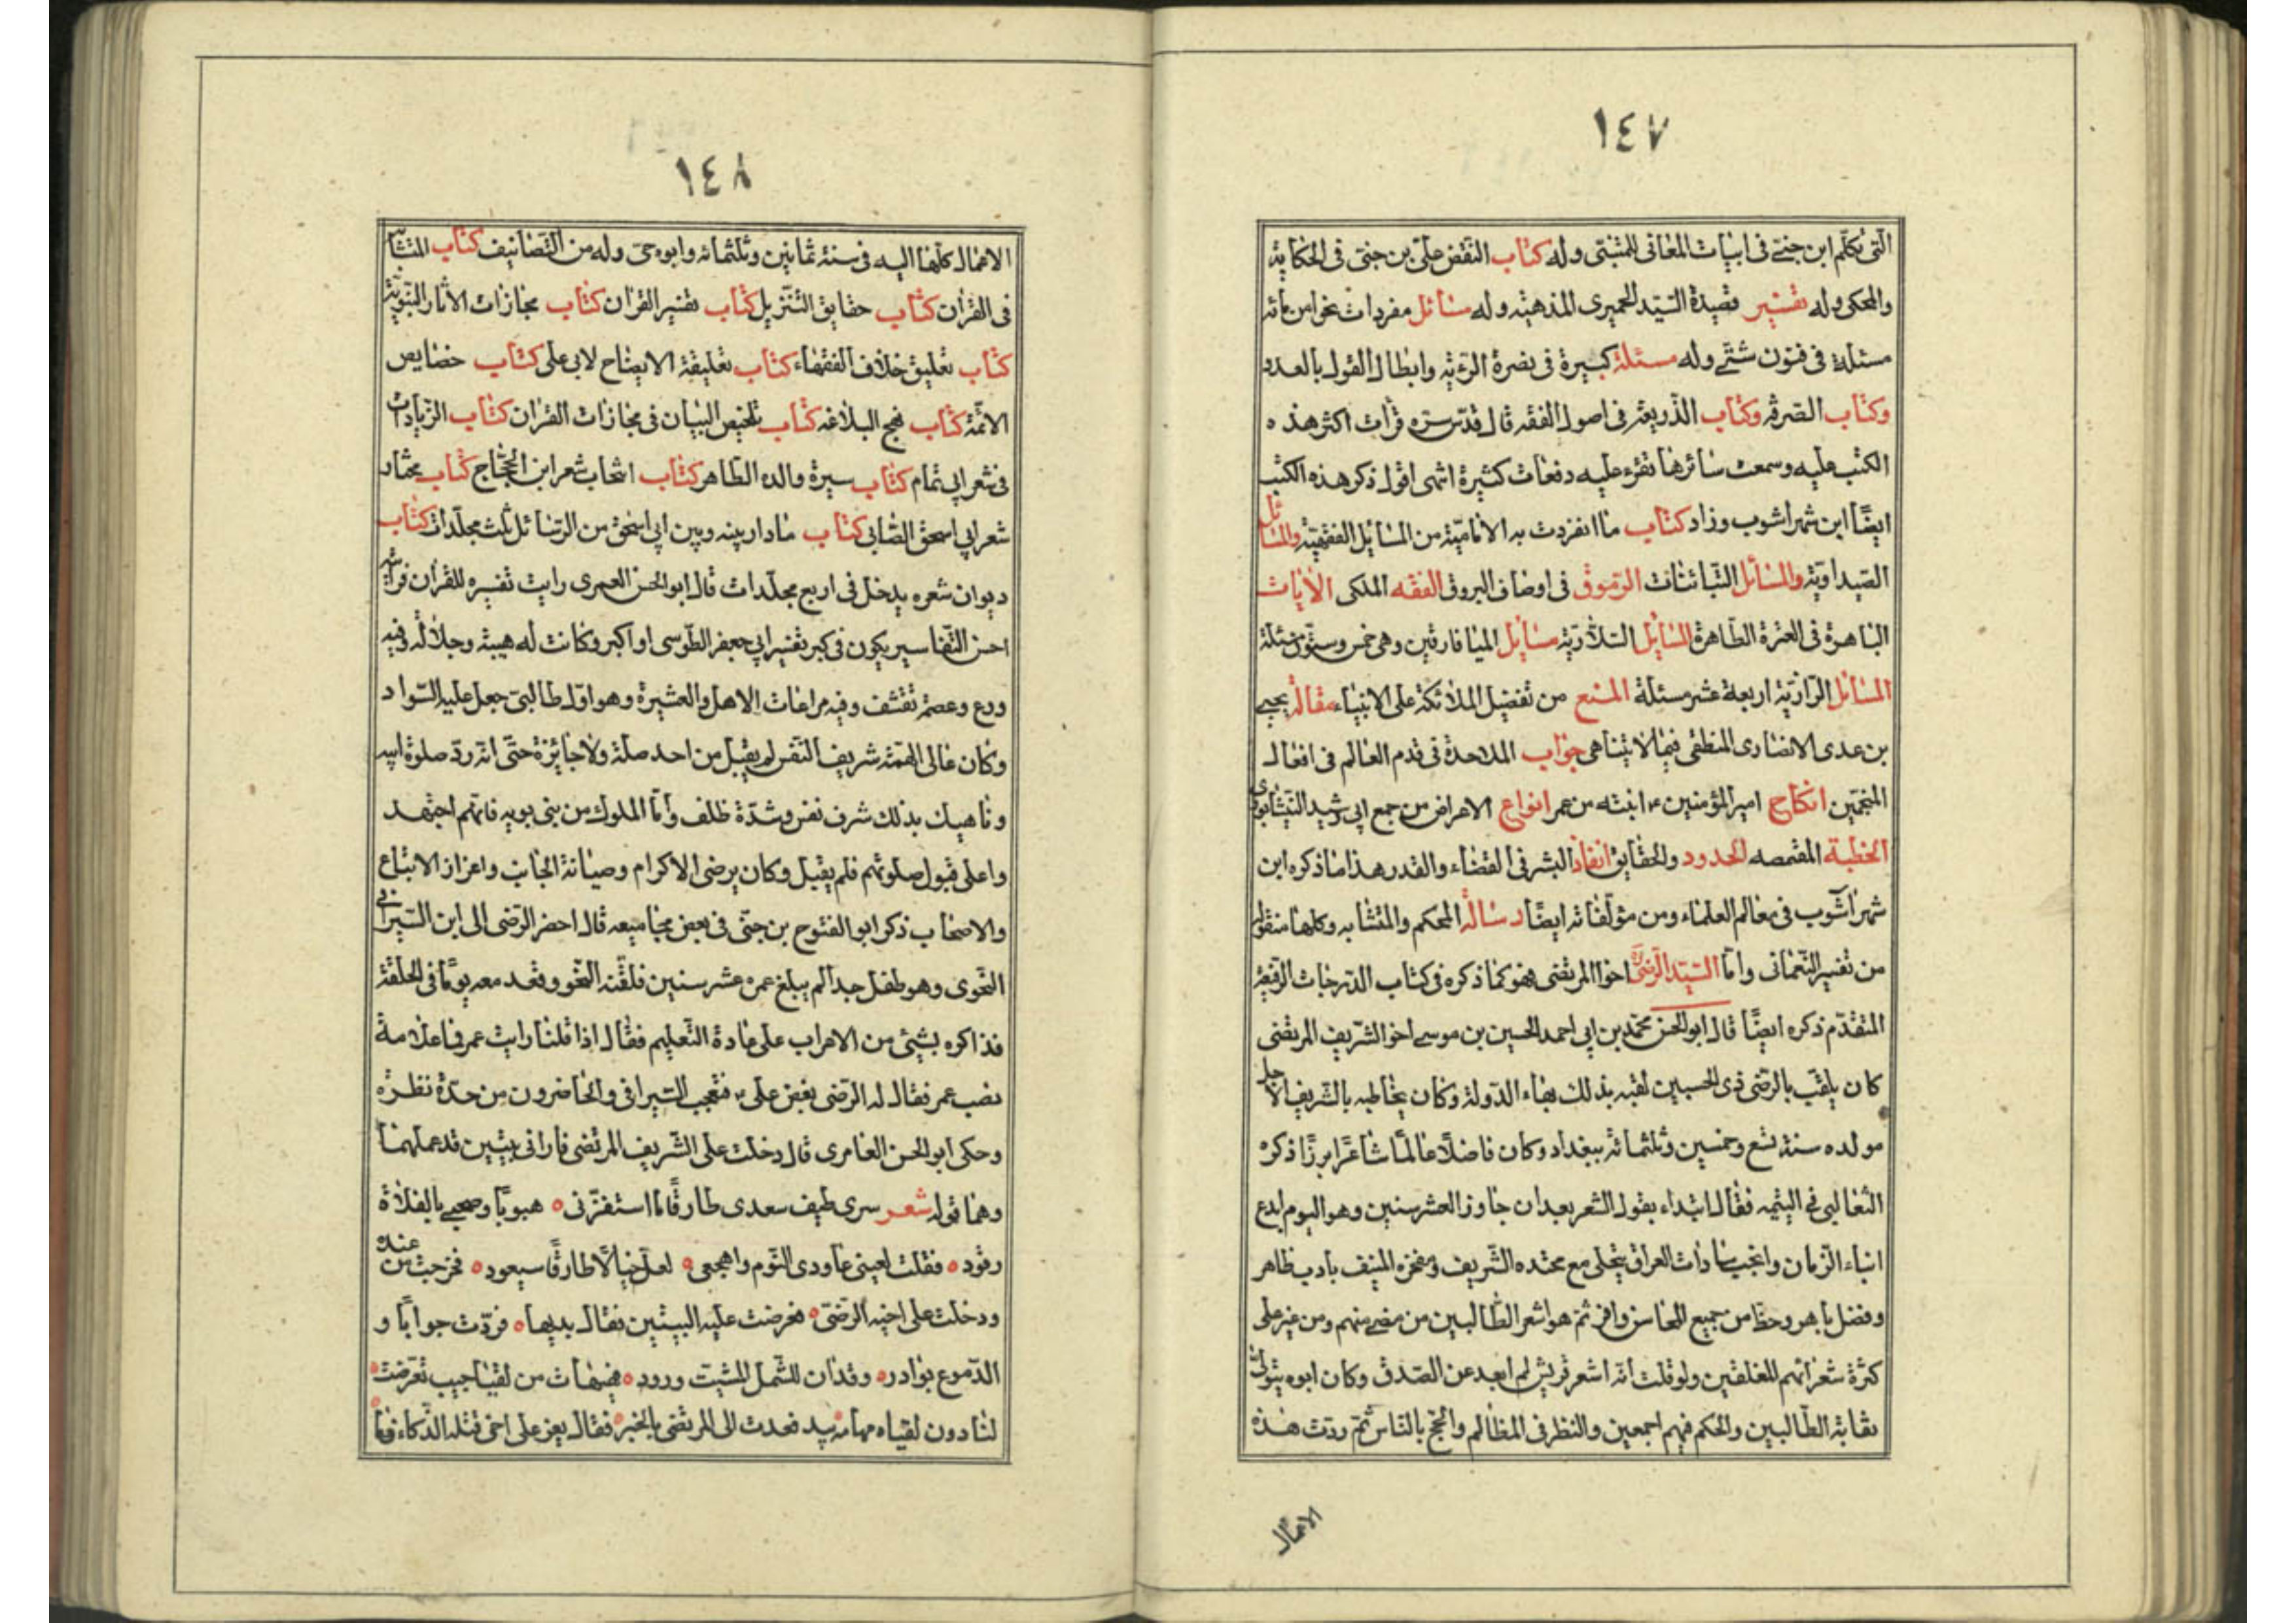 ١٤٧
التى تكلم ابن جنى فى ابيات المعانى للمتنبى وله كتاب النقض على بن جنى فى الحكاية
والمحكى وله تفسير قصيدة السيد الحميرى المذهبة وله مسائل مفردات نحو من مائة
مسئلة فى فنون شتى وله مسئلة كبيرة فى نصرة الرؤية وابطال القول بالعدد
وكتاب الصرفة وكتاب الذريعة فى اصول الفقه قال قدس سره قرأت اكثر هذه
الكتب عليه وسمعت سائرها تقرء عليه دفعات كثيرة انتهى اقول ذكر هذه الكتب
ايضًا ابن شهراشوب وزاد كتاب ما انفردت به الامامية من المسايل الفقهية والمسائل
الصيداوية والمسائل التبانيات الرموق فى اوصاف البروق الفقه الملكى الايات
الباهرة فى العترة الطاهرة المسايل السلارية مسايل الميافارقين وهى خمس وستون مسئلة
المسائل الرازية اربعة عشر مسئلة المنع من تفضيل الملائكة على الانبياء مقالة يحيى
بن عدى الانصارى المنطقى فيما لا يتناهى جواب الملاحدة فى قدم العالم فى افعال
المنجمين انكاح امير المؤمنين ع ابنته من عمر انواع الاعراض من جمع ابى رشيد النيشابورى
الخطبة المقمصه الحدود والحقايق انقاذ البشر فى القضاء والقدر هذا ما ذكره ابن
شهراشوب فى معالم العلماء ومن مؤلفاته ايضًا رسالة المحكم والمتشابه وكلها منقول
من تفسير النعمانى واما السيد الرضى اخوا المرتضى فهو كما ذكره فى كتاب الدرجات الرفيعة
المتقدم ذكره ايضًا قال ابو الحسن محمد بن ابى احمد الحسين بن موسى اخو الشريف المرتضى
كان يلقب بالرضى ذى الحسبين لقبه بذلك بهاء الدولة وكان يخاطبه بالشريف الاجل
مولده سنة تسع وخمسين وثلثمائة ببغداد وكان فاضلًا عالمًا شاعرًا مبرزًا ذكره
الثعالبى فى اليتيمه فقال ابتداء يقول الشعر بعد ان جاوز العشر سنين وهو اليوم ابدع
ابناء الزمان وانجب سادات العراق يتحلى مع محتده الشريف ومفخره المنيف بادب ظاهر
وفضل باهر وحظ من جميع المحاسن وافر ثم هو اشعر الطالبين من مضى منهم ومن غبر على
كثرة شعرائهم المغلقين ولو قلت انه اشعر قريش لم ابعد عن الصدق وكان ابوه يتولى
نقابة الطالبين والحكم فيهم اجمعين والنظر فى المظالم والحج بالناس ثم ردت هذه
الاعمال
١٤٨
الاعمال كلها اليه فى سنة ثمانين وثلثمائة وابوه حى وله من التصانيف كتاب المتشابه
فى القران كتاب حقايق التنزيل كتاب تفسير القران كتاب مجازات الاثار النبوية
كتاب تعليق خلاف الفقهاء كتاب تعليقة الايضاح لابى على كتاب خصايص
الائمة كتاب نهج البلاغه كتاب تلخيص البيان فى مجازات القران كتاب الزيادات
فى شعر ابى تمام كتاب سيرة والده الطاهر كتاب انتخاب شعر ابن الحجاج كتاب مختار
شعر ابى اسحق الصابى كتاب ما دار بينه وبين ابى اسحق من الرسائل ثلث مجلدات كتاب
ديوان شعره يدخل فى اربع مجلدات قال ابو الحسن العمرى رايت تفسيره للقران فرأيته
احسن التفاسير يكون فى كبر تفسير ابى جعفر الطوسى او اكبر وكانت له هيبة وجلالة وفيه
ورع وعصمة تقشف وفيه مراعات الاهل والعشيرة وهو اول طالبى جعل عليه السواد
وكان عالى الهمة شريف النفس لم يقبل من احد صلة ولا جائزة حتى انه رد صلوة ابيه
وناهيك بذلك شرف نفس وشدة ظلف واما الملوك من بنى بويه فانهم اجتهد
وا على قبول صلوتهم فلم يقبل وكان يرضى الاكرام وصيانة الجانب واعزاز الاتباع
والاصحاب ذكر ابو الفتوح بن جنى فى بعض مجاميعه قال احضر الرضى الى ابن السيرافى
النحوى وهو طفل جدا لم يبلغ عمره عشر سنين فلقنه النحو وقعد معه يومًا فى الحلقة
فذاكره بشيئ من الاعراب على عادة التعليم فقال اذا قلنا رايت عمر فما علامة
نصب عمر فقال له الرضى بغض على ع فتعجب السيرافى والحاضرون من حدة نظره
وحكى ابو الحسن العامرى قال دخلت على الشريف المرتضى فارانى بيتين قد عملهما
وهما قوله شعر سرى طيف سعدى طارقًا ما استفزنى ه هبوبًا وصحبى بالفلاة
رقود ه فقلت لعينى عاودى النوم واهجعى ه لعل خيالًا طارقًا سيعود ه فخرجت من عنده
ودخلت على اخيه الرضى ه فعرضت عليه البيتين فقال بديها ه فردت جوابًا و
الدموع بوادر ه وقدان للشمل المشتت ورود ه فهيهات من لقيا حبيب تعرضت ه
لنا دون لقياه مهامه بيد فعدت الى المرتضى بالخبر ه فقال يعز على اخى قتله الذكاء فما